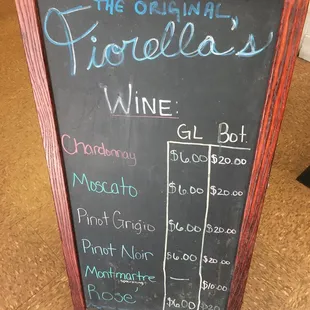 THE ORIGINAL,
Fiorella's
WINE:
GL Bot.
Chardonnay $6.00 $20.00
Moscato $6.00 $20.00
Pinot Grigio $6.00 $20.00
Pinot Noir $6.00 $20.00
Montmartre — $10.00
Rose $6.00 $20